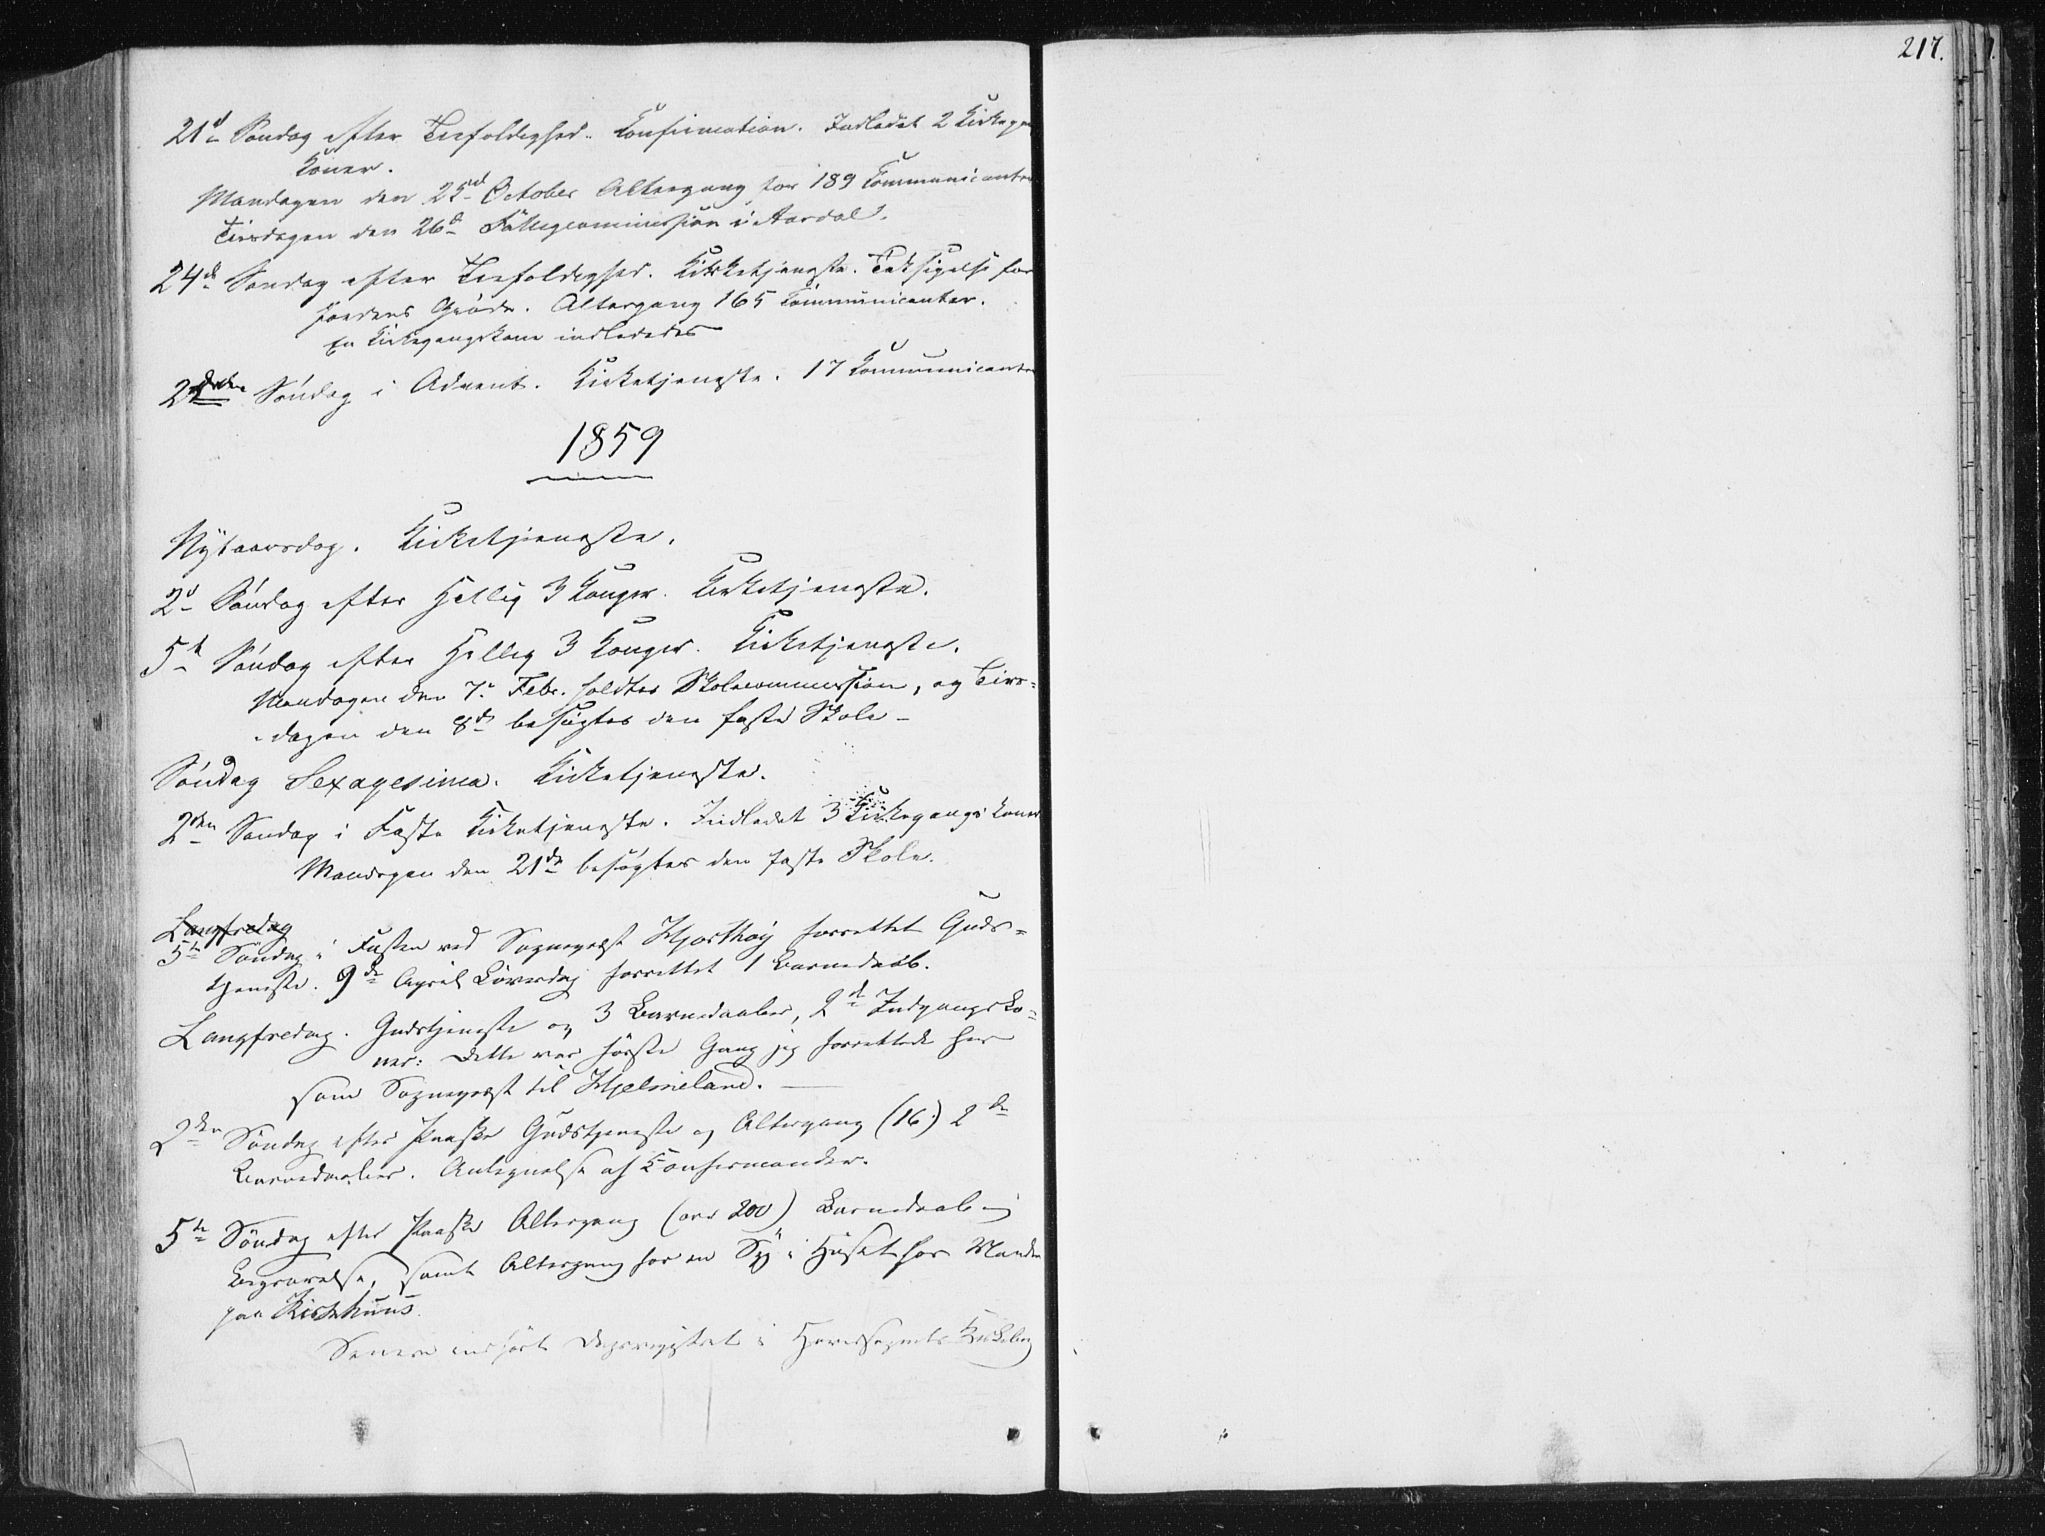 217.
21d Søndag efter Trefoldighed. Confirmation. Indledet 2 Kirkegangs
Koner.
Mandagen den 25d October Altergang for 189 Communicanter
Tirsdagen den 26d Fattigcommission i Aardal.
24d Søndag efter Trefoldighed. Kirketjeneste. Taksigelse for
Jordens Grøde. Altergang 165 Communicanter.
En Kirkegangskone indlededes
2den Søndag i Advent. Kirketjeneste. 17 Communicanter
1859
Nytaarsdag. Kirketjeneste.
2d Søndag efter Hellig 3 Konger. Kirketjeneste.
5t Søndag efter Hellig 3 Konger. Kirketjeneste.
Mandagen den 7. Febr. holdtes Skolecommission, og Tirs-
dagen den 8d besøgtes den faste Skole -
Søndag Sexagesima. Kirketjeneste.
2den Søndag i Faste Kirketjeneste. Indledet 3 Kirkegangskoner
Mandagen den 21de besøgtes den faste Skole.
Langfredag
5te Søndag i Fasten ved Sognepræst Hjorthøy forrettet Guds-
tjeneste. 9de April Løverdag forrettet 1 Barnedaab.
Langfredag. Gudstjeneste og 3 Barnedaaber, 2d Indgangsko-
ner: Dette var første Gang jeg forrettede her
som Sognepræst til Hjelmeland.
2den Søndag efter Paaske Gudstjeneste og Altergang (16) 2de
Barnedaaber. Antegnelse af Confirmander.
5te Søndag efter Paaske Altergang (over 200) Barnedaab og
Begravelse, samt Altergang for en Syg i Huset hos Manden
paa
Senere indført Dagregistret i Hovedsognets Kirkebog